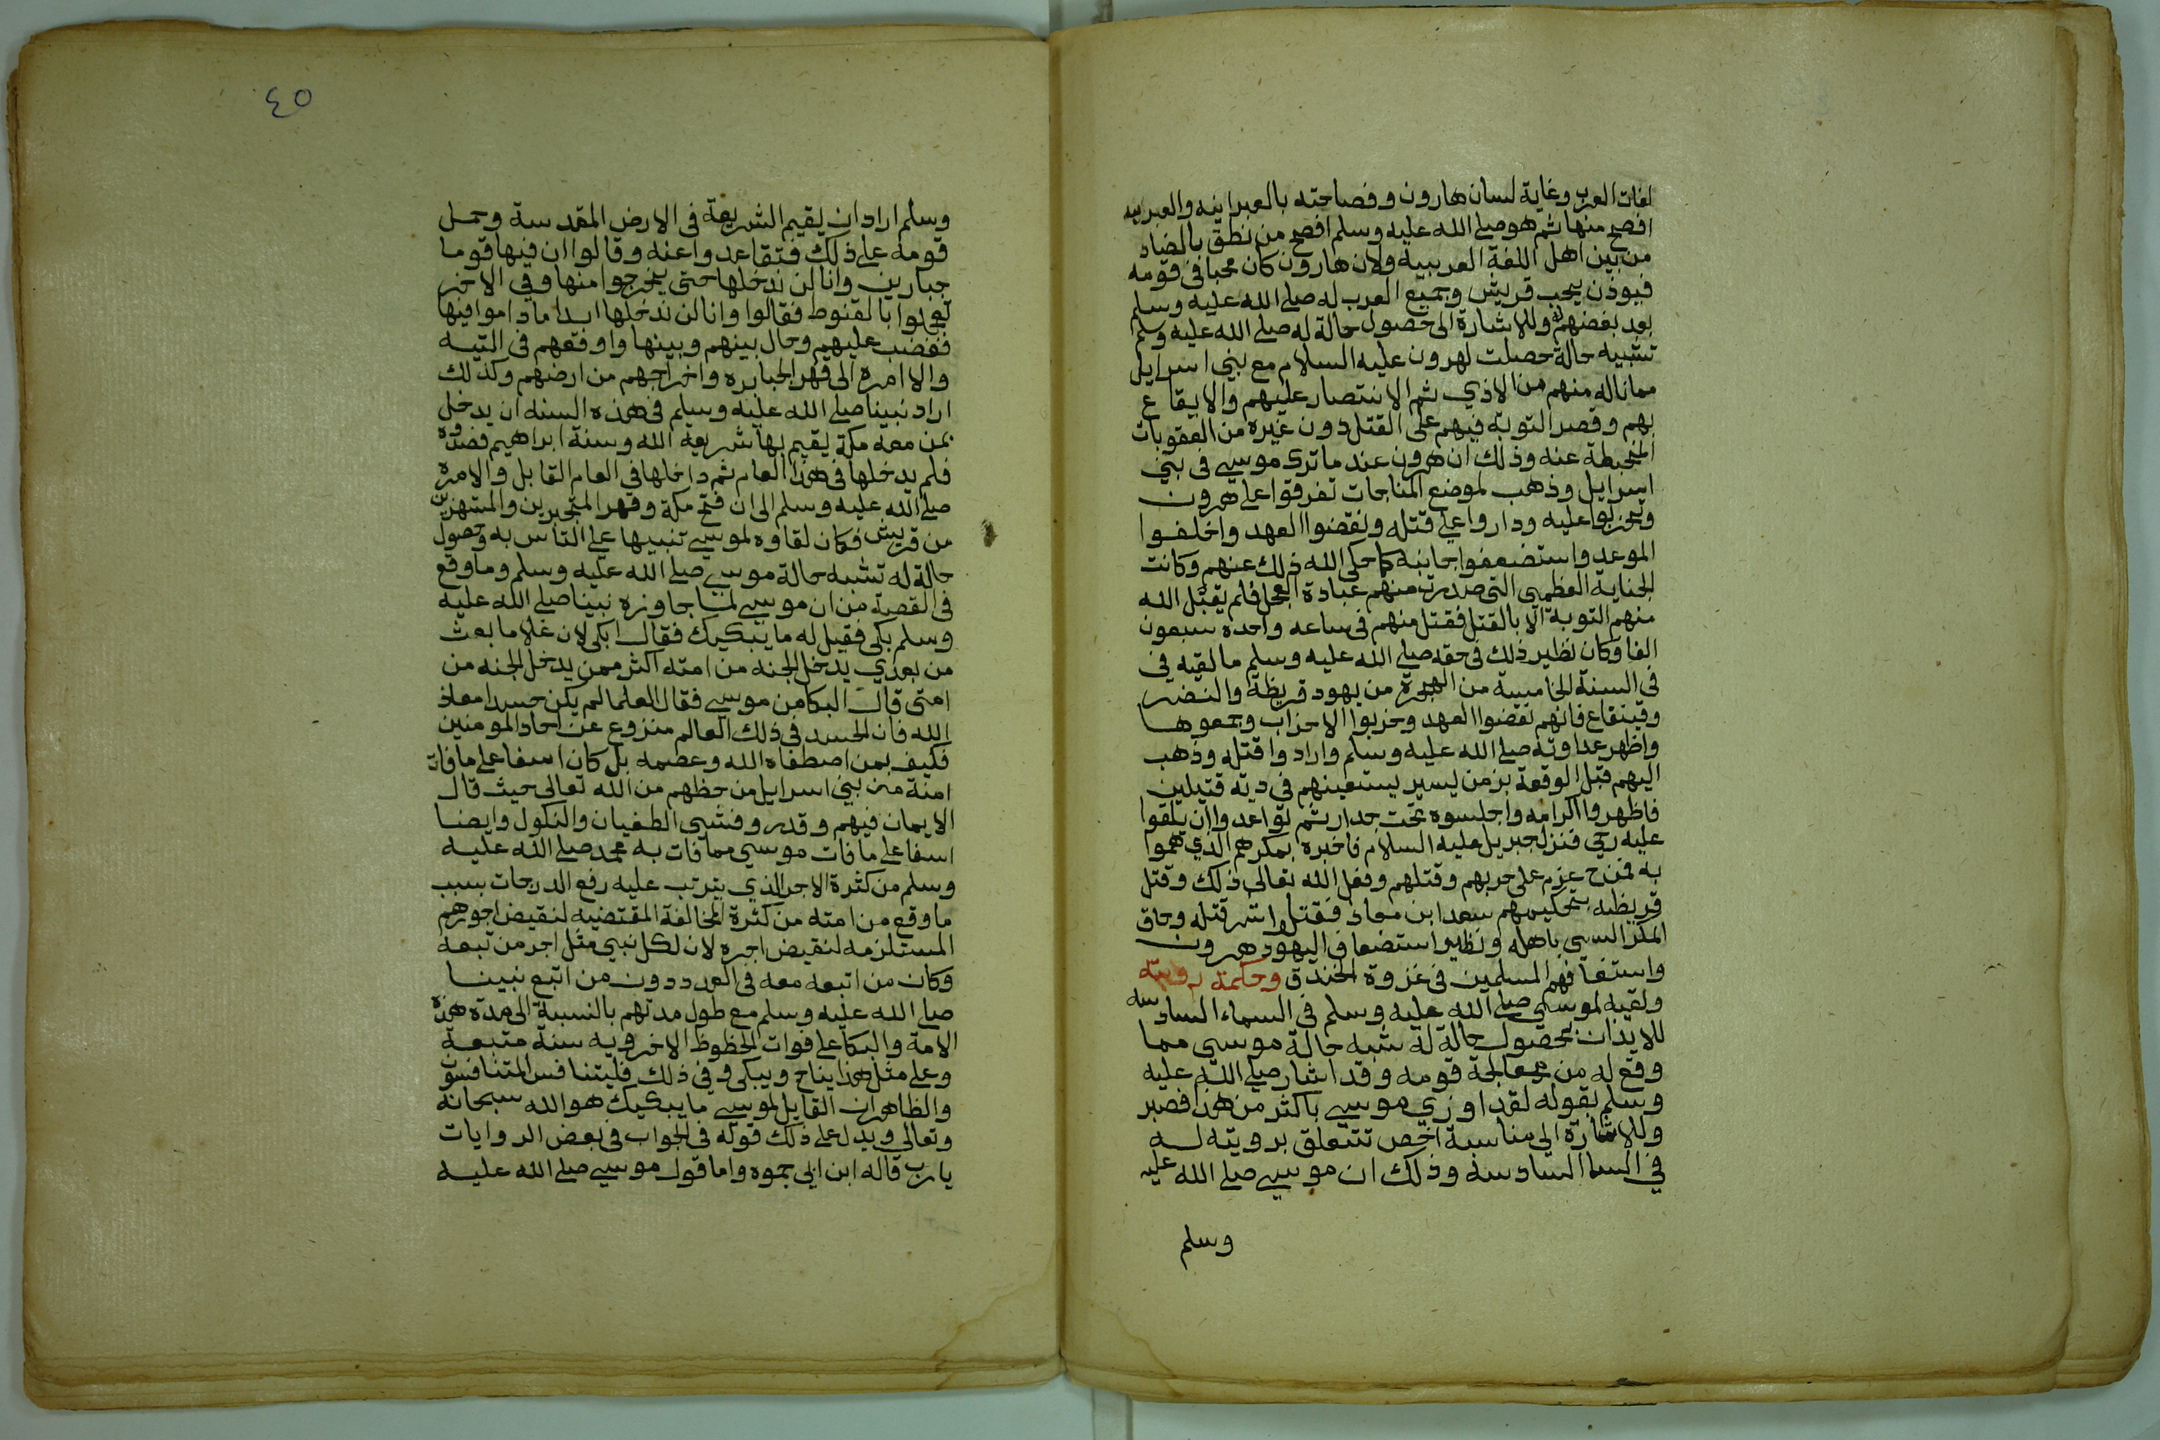 لغات العرب وغاية لسان هارون وفصاحته بالعبرانيه والعبرانيه
افصح منها ثم هو صلى الله عليه وسلم افصح من نطق بالضاد
من بين اهل اللغة العربية ولان هارون كان محببا في قومه
فيوذن بحب قريش وجميع العرب له صلى الله عليه وسلم
بعد بغضهم له وللاشارة الى حصول حالة له صلى الله عليه وسلم
تشبه حالة حصلت لهرون عليه السلام مع بني اسرايل
مما ناله منهم من الاذي ثم الانتصار عليهم والايقاع
بهم وقصر التوبة فيهم على القتل دون غيره من العقوبات
المنحطة عنه وذلك ان هرون عند ما تركه موسى في بني
اسرايل وذهب لموضع المناجات تفرقوا على هرون
وتحزبوا عليه وداروا على قتله ونقضوا العهد واخلفوا
الموعد واستضعفوا جانبه كما حكى الله ذلك عنهم وكانت
الجناية العظمى التي صدرت منهم عبادة العجل فلم يقبل الله
منهم التوبة الا بالقتل فقتل منهم في ساعه واحده سبعون
الفا وكان نظير ذلك في حقه صلى الله عليه وسلم ما لقيه في
في السنة الخامسة من الهجرة من يهود قريظة والنضير
وقينقاع فانهم نقضوا العهد وحزبوا الاحزاب وجمعوها
واظهر عداوته صلى الله عليه وسلم وارادوا قتله وذهب
اليهم قبل الوقعة بزمن يسير يستعينهم في دية قتيلين
فاظهروا اكرامه واجلسوه تحت جدار ثم تواعدوا ان يلقوا
عليه رحى فنزل جبريل عليه السلام فاخبره بمكرهم الذي هموا
به فمن ح عزم على حربهم وقتلهم وفعل الله تعالى ذلك وقتل
قريظه بتحكيمهم سعد ابن معاذ فقتلوا شر قتله وحاق
المكر السيى باهله ونظير استضعاف اليهود هرون
واستضعافهم المسلمين في غزوة الخندق وحكمة رويته
ولقيه لموسى صلى الله عليه وسلم في السماء السادسه
للايذان بحصول حالة له تشبه حالة موسى مما
وقع له من معالجة قومه وقد اشار صلى الله عليه
وسلم بقوله لقد اوذي موسى باكثر من هذا فصبر
وللاشارة الى مناسبة اخص تتعلق برويته له
في السما السادسه وذلك ان موسى صلى الله عليه
وسلم
٤٥
وسلم اراد ان يقيم الشريعة في الارض المقدسة وحمل
قومه على ذلك فتقاعدوا عنه وقالوا ان فيها قوما
جبارين وانا لن ندخلها حتى يخرجوا منها وفي الاخر
بالقنوط فقالوا وانا لن ندخلها ابدا ما داموا فيها
فغضب عليهم وحال بينهم وبينها واوقعهم في التيه
والا امره الى قهر الجبابره واخراجهم من ارضهم وكذلك
اراد نبينا صلى الله عليه وسلم في هذه السنه ان يدخل
بمن معه مكة يقيم بها شريعة الله وسنة ابراهيم فصدوه
فلم يدخلها في هذا العام ثم دخلها في العام القابل والامره
صلى الله عليه وسلم الى ان فتح مكة وقهر المتجبرين والمستهزين
من قريش فكان لقاوه لموسى تنبيها على التأس به وحصول
حالة له تشبه حالة موسى صلى الله عليه وسلم وما وقع
في القصة من ان موسى لما جاوزه نبينا صلى الله عليه
وسلم بكى فقيل له ما يبكيك فقال ابكى لان غلاما بعث
من بعدي يدخل الجنه من امته اكثر ممن يدخل الجنه من
امتى قال البكا من موسى فقال العلما لم يكن حسدا معاذ
الله فان الحسد في ذلك العالم منزوع عن احاد المومنين
فكيف بمن اصطفاه الله وعصمه بل كان اسفا على ما فات
امته من بني اسرايل من حظهم من الله تعالى حيث قال
الايمان فيهم وقدر وفشى الطغيان والنكول وايضا
اسفا على ما فات موسى مما فات به محمد صلى الله عليه
وسلم من كثرة الاجر الذي يترتب عليه رفع الدرجات بسبب
ما وقع من امته من كثرة المخالفة المقتضيه لنقيض اجورهم
المستلزمه لنقيض اجره لان لكل نبي مثل اجر من تبعه
وكان من اتبعه معه في العدد دون من اتبع نبينا
صلى الله عليه وسلم مع طول مدتهم بالنسبة الى مدة هذه
الامة والبكا على فوات الحظوظ الاخرويه سنة متبعة
وعلى مثل هذا يناح ويبكى وفي ذلك فليتنافس المتنافسون
والظاهر ان القايل لموسى ما يبكيك هو الله سبحانه
وتعالى ويدل على ذلك قوله في الجواب في بعض الروايات
يا رب قاله ابن ابي جمره واما قول موسى صلى الله عليه